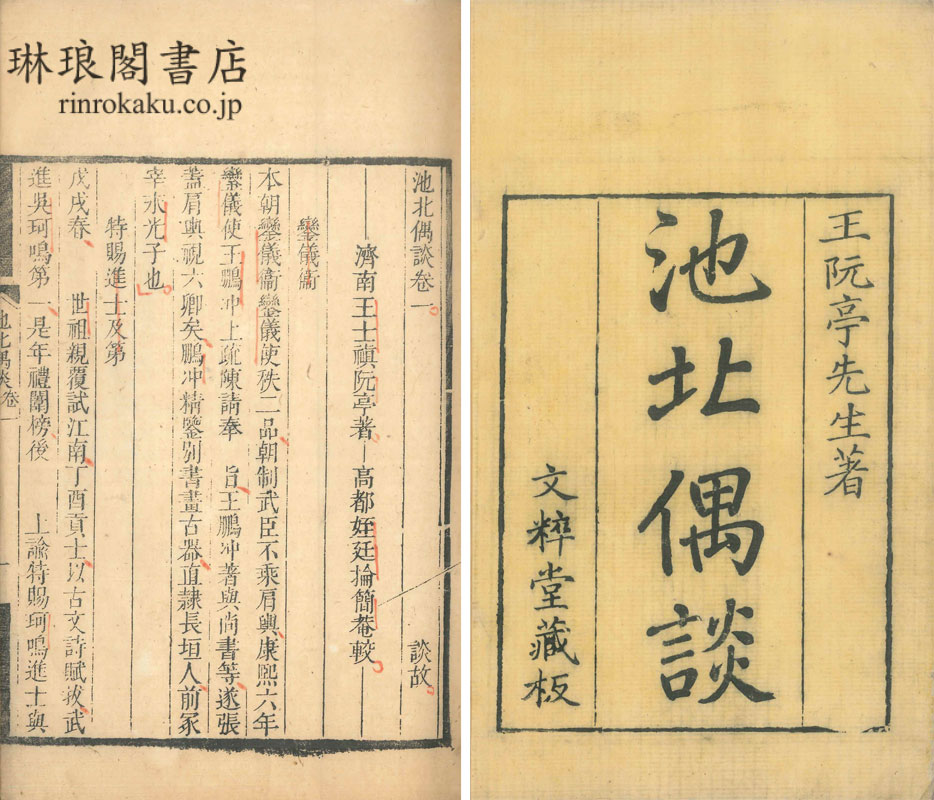 琳琅閣書店
rinrokaku.co.jp
池北偶談卷一 談故
濟南王士禛阮亭著 高都姪廷掄簡菴較
鑾儀衞
本朝鑾儀衞鑾儀使秩二品朝制武臣不乘肩輿康熙六年
鑾儀使王鵬冲上疏陳請奉 旨王鵬冲著與尚書等遂張
蓋肩輿視六卿矣鵬冲精鑒別書畫古器直隸長垣人前冢
宰永光子也
特賜進士及第
戊戌春 世祖親覆試江南丁酉貢士以古文詩賦拔武
進吳珂鳴第一是年禮闈榜後 上諭特賜珂鳴進士與
池北偶談卷一
王阮亭先生著
池北偶談
文粹堂藏板